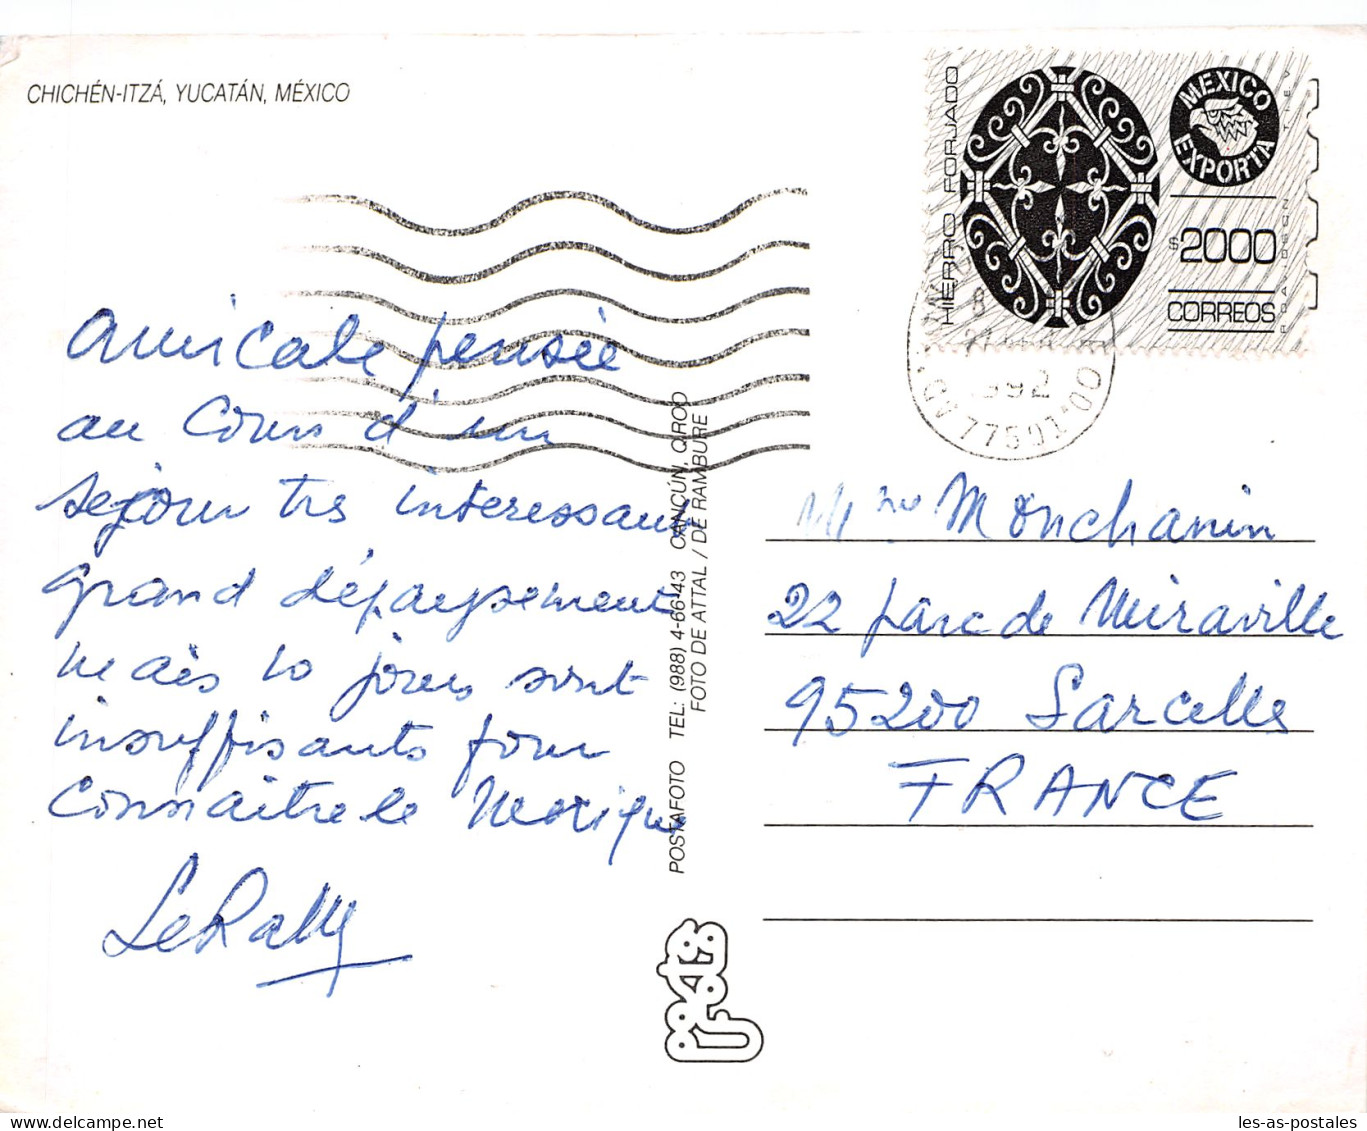 CHICHÉN-ITZÁ, YUCATÁN, MÉXICO
HIERRO FORJADO
MEXICO EXPORTA
$2000
CORREOS
1992
77501
amicale pensée
au cours d'un
séjour très interessant
grand dépaysement
mais 10 jours sont
insuffisants pour
connaitre le Mexique
LeRally
POSTAFOTO TEL: (988) 4-66-43 CANCÚN, Q.ROO
FOTO DE ATTAL / DE RAMBURE
Mme Monchanin
22 parc de Miraville
95200 Sarcelles
FRANCE
les-as-postales